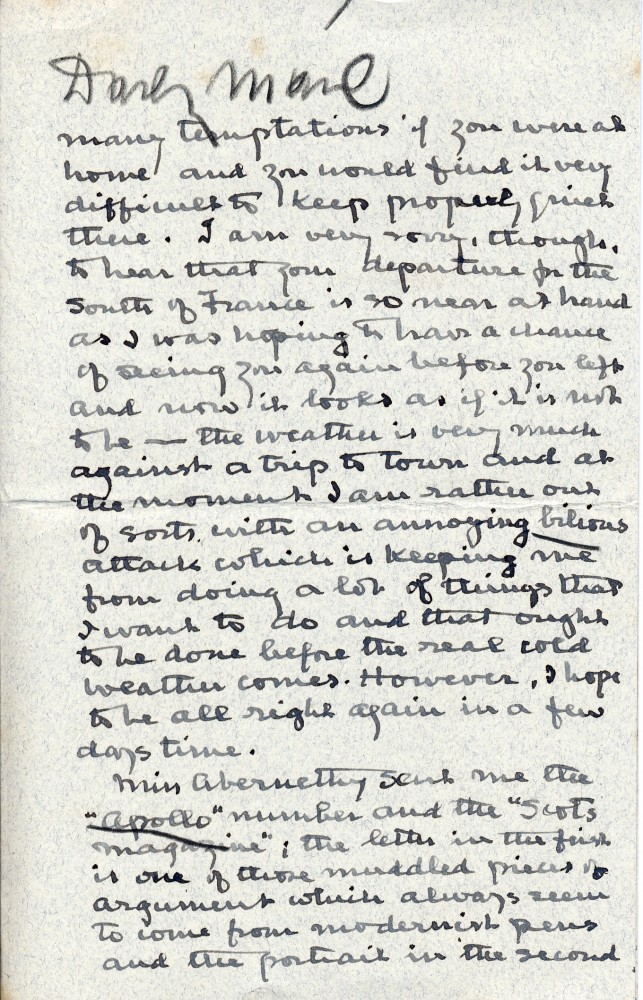 Daily Mail
many temptations if you were at
home and you would find it very
difficult to keep properly quiet
there. I am very sorry, though,
to hear that your departure for the
South of France is so near at hand
as I was hoping to have a chance
of seeing you again before you left
and now it looks as if it is not
to be — the weather is very much
against a trip to town and at
the moment I am rather out
of sorts with an annoying bilious
attack which is keeping me
from doing a lot of things that
I want to do and that ought
to be done before the real cold
weather comes. However, I hope
to be all right again in a few
days time.
Miss Abernethy sent me the
"Apollo" number and the "Scots
magazine"; the letter in the first
is one of those muddled pieces of
argument which always seem
to come from modernist pens
and the portrait in the second